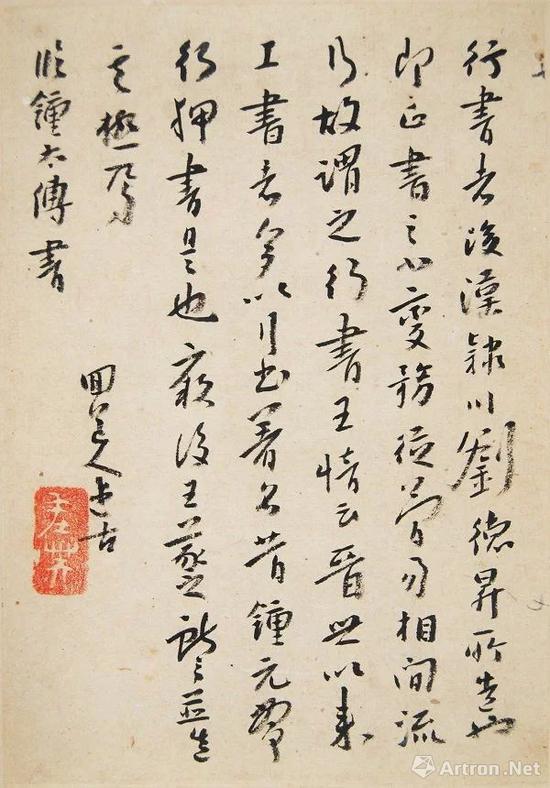 行書者後漢潁川劉德昇所造也
即正書之小變務從簡易相間流
行故謂之行書王愔云晉世以來
工書者多以行書著名昔鍾元常
行押書是也厥後王羲之獻之並造
其極焉
臨鍾太傅書
八大山人
Artron.Net